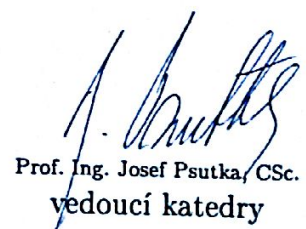 Prof. Ing. Josef Psutka, CSc.
vedoucí katedry